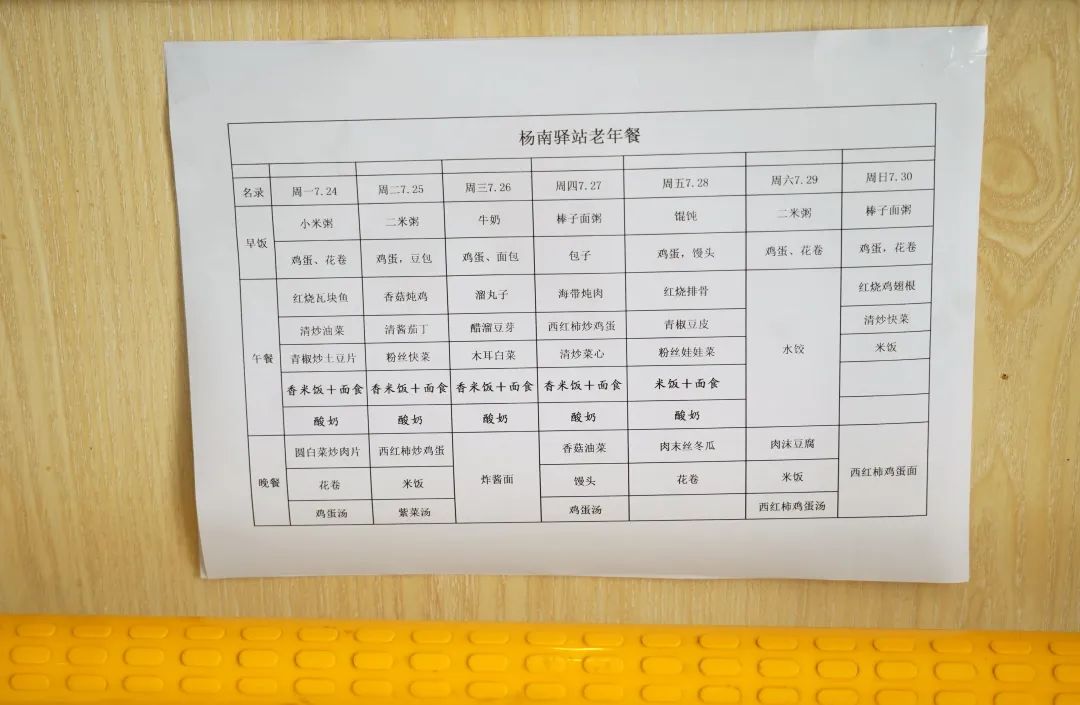 杨南驿站老年餐
名录 周一7.24 周二7.25 周三7.26 周四7.27 周五7.28 周六7.29 周日7.30
早饭 小米粥 二米粥 牛奶 棒子面粥 馄饨 二米粥 棒子面粥
鸡蛋、花卷 鸡蛋，豆包 鸡蛋、面包 包子 鸡蛋，馒头 鸡蛋、花卷 鸡蛋，花卷
午餐 红烧瓦块鱼 香菇炖鸡 溜丸子 海带炖肉 红烧排骨 水饺 红烧鸡翅根
清炒油菜 清酱茄丁 醋溜豆芽 西红柿炒鸡蛋 青椒豆皮 清炒快菜
青椒炒土豆片 粉丝快菜 木耳白菜 清炒菜心 粉丝娃娃菜 米饭
香米饭＋面食 香米饭＋面食 香米饭＋面食 香米饭＋面食 米饭＋面食
酸奶 酸奶 酸奶 酸奶 酸奶
晚餐 圆白菜炒肉片 西红柿炒鸡蛋 炸酱面 香菇油菜 肉末丝冬瓜 肉沫豆腐 西红柿鸡蛋面
花卷 米饭 馒头 花卷 米饭
鸡蛋汤 紫菜汤 鸡蛋汤 西红柿鸡蛋汤